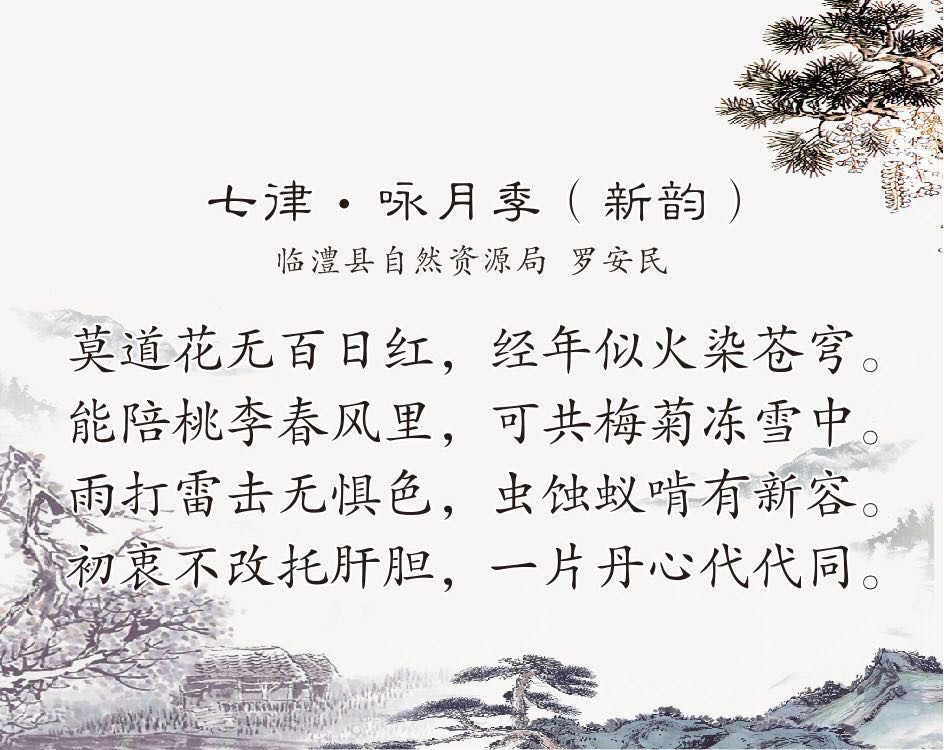 七律·咏月季（新韵）
临澧县自然资源局 罗安民
莫道花无百日红，经年似火染苍穹。
能陪桃李春风里，可共梅菊冻雪中。
雨打雷击无惧色，虫蚀蚁啃有新容。
初衷不改托肝胆，一片丹心代代同。